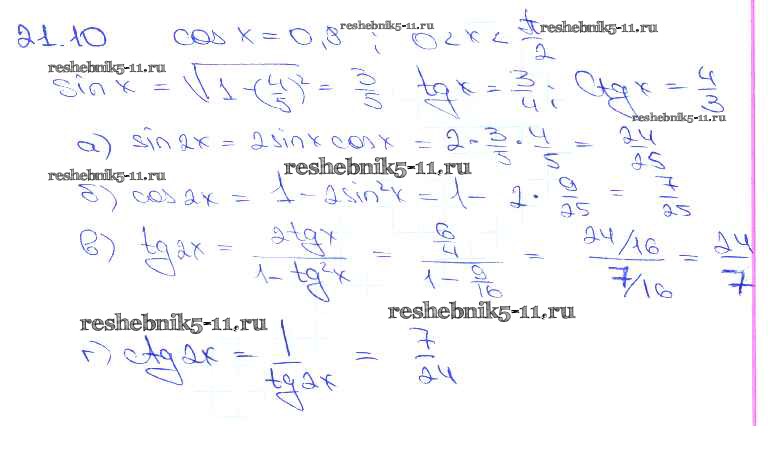 21.10 cos x = 0,8 ; 0 < x < π/2
reshebnik5-11.ru reshebnik5-11.ru
reshebnik5-11.ru
sin x = √(1-(4/5)²) = 3/5 tg x = 3/4; ctg x = 4/3
reshebnik5-11.ru
а) sin 2x = 2 sin x cos x = 2 · 3/5 · 4/5 = 24/25
reshebnik5-11.ru reshebnik5-11.ru
б) cos 2x = 1 - 2 sin²x = 1 - 2 · 9/25 = 7/25
в) tg 2x = 2tg x / 1 - tg²x = 6/4 / 1 - 9/16 = 24/16 / 7/16 = 24/7
reshebnik5-11.ru reshebnik5-11.ru
г) ctg 2x = 1/tg 2x = 7/24